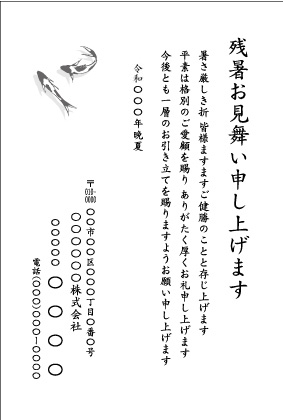 残暑お見舞い申し上げます
暑さ厳しき折 皆様ますますご健勝のことと存じ上げます
平素は格別のご愛顧を賜り ありがたく厚くお礼申し上げます
今後とも一層のお引き立てを賜りますようお願い申し上げます
令和〇〇〇年晩夏
〒010-0000
〇〇市〇〇区〇〇〇丁目〇番〇号
〇〇〇〇〇〇株式会社
〇〇〇〇〇 〇〇〇〇
電話(〇〇〇)〇〇〇ー〇〇〇〇